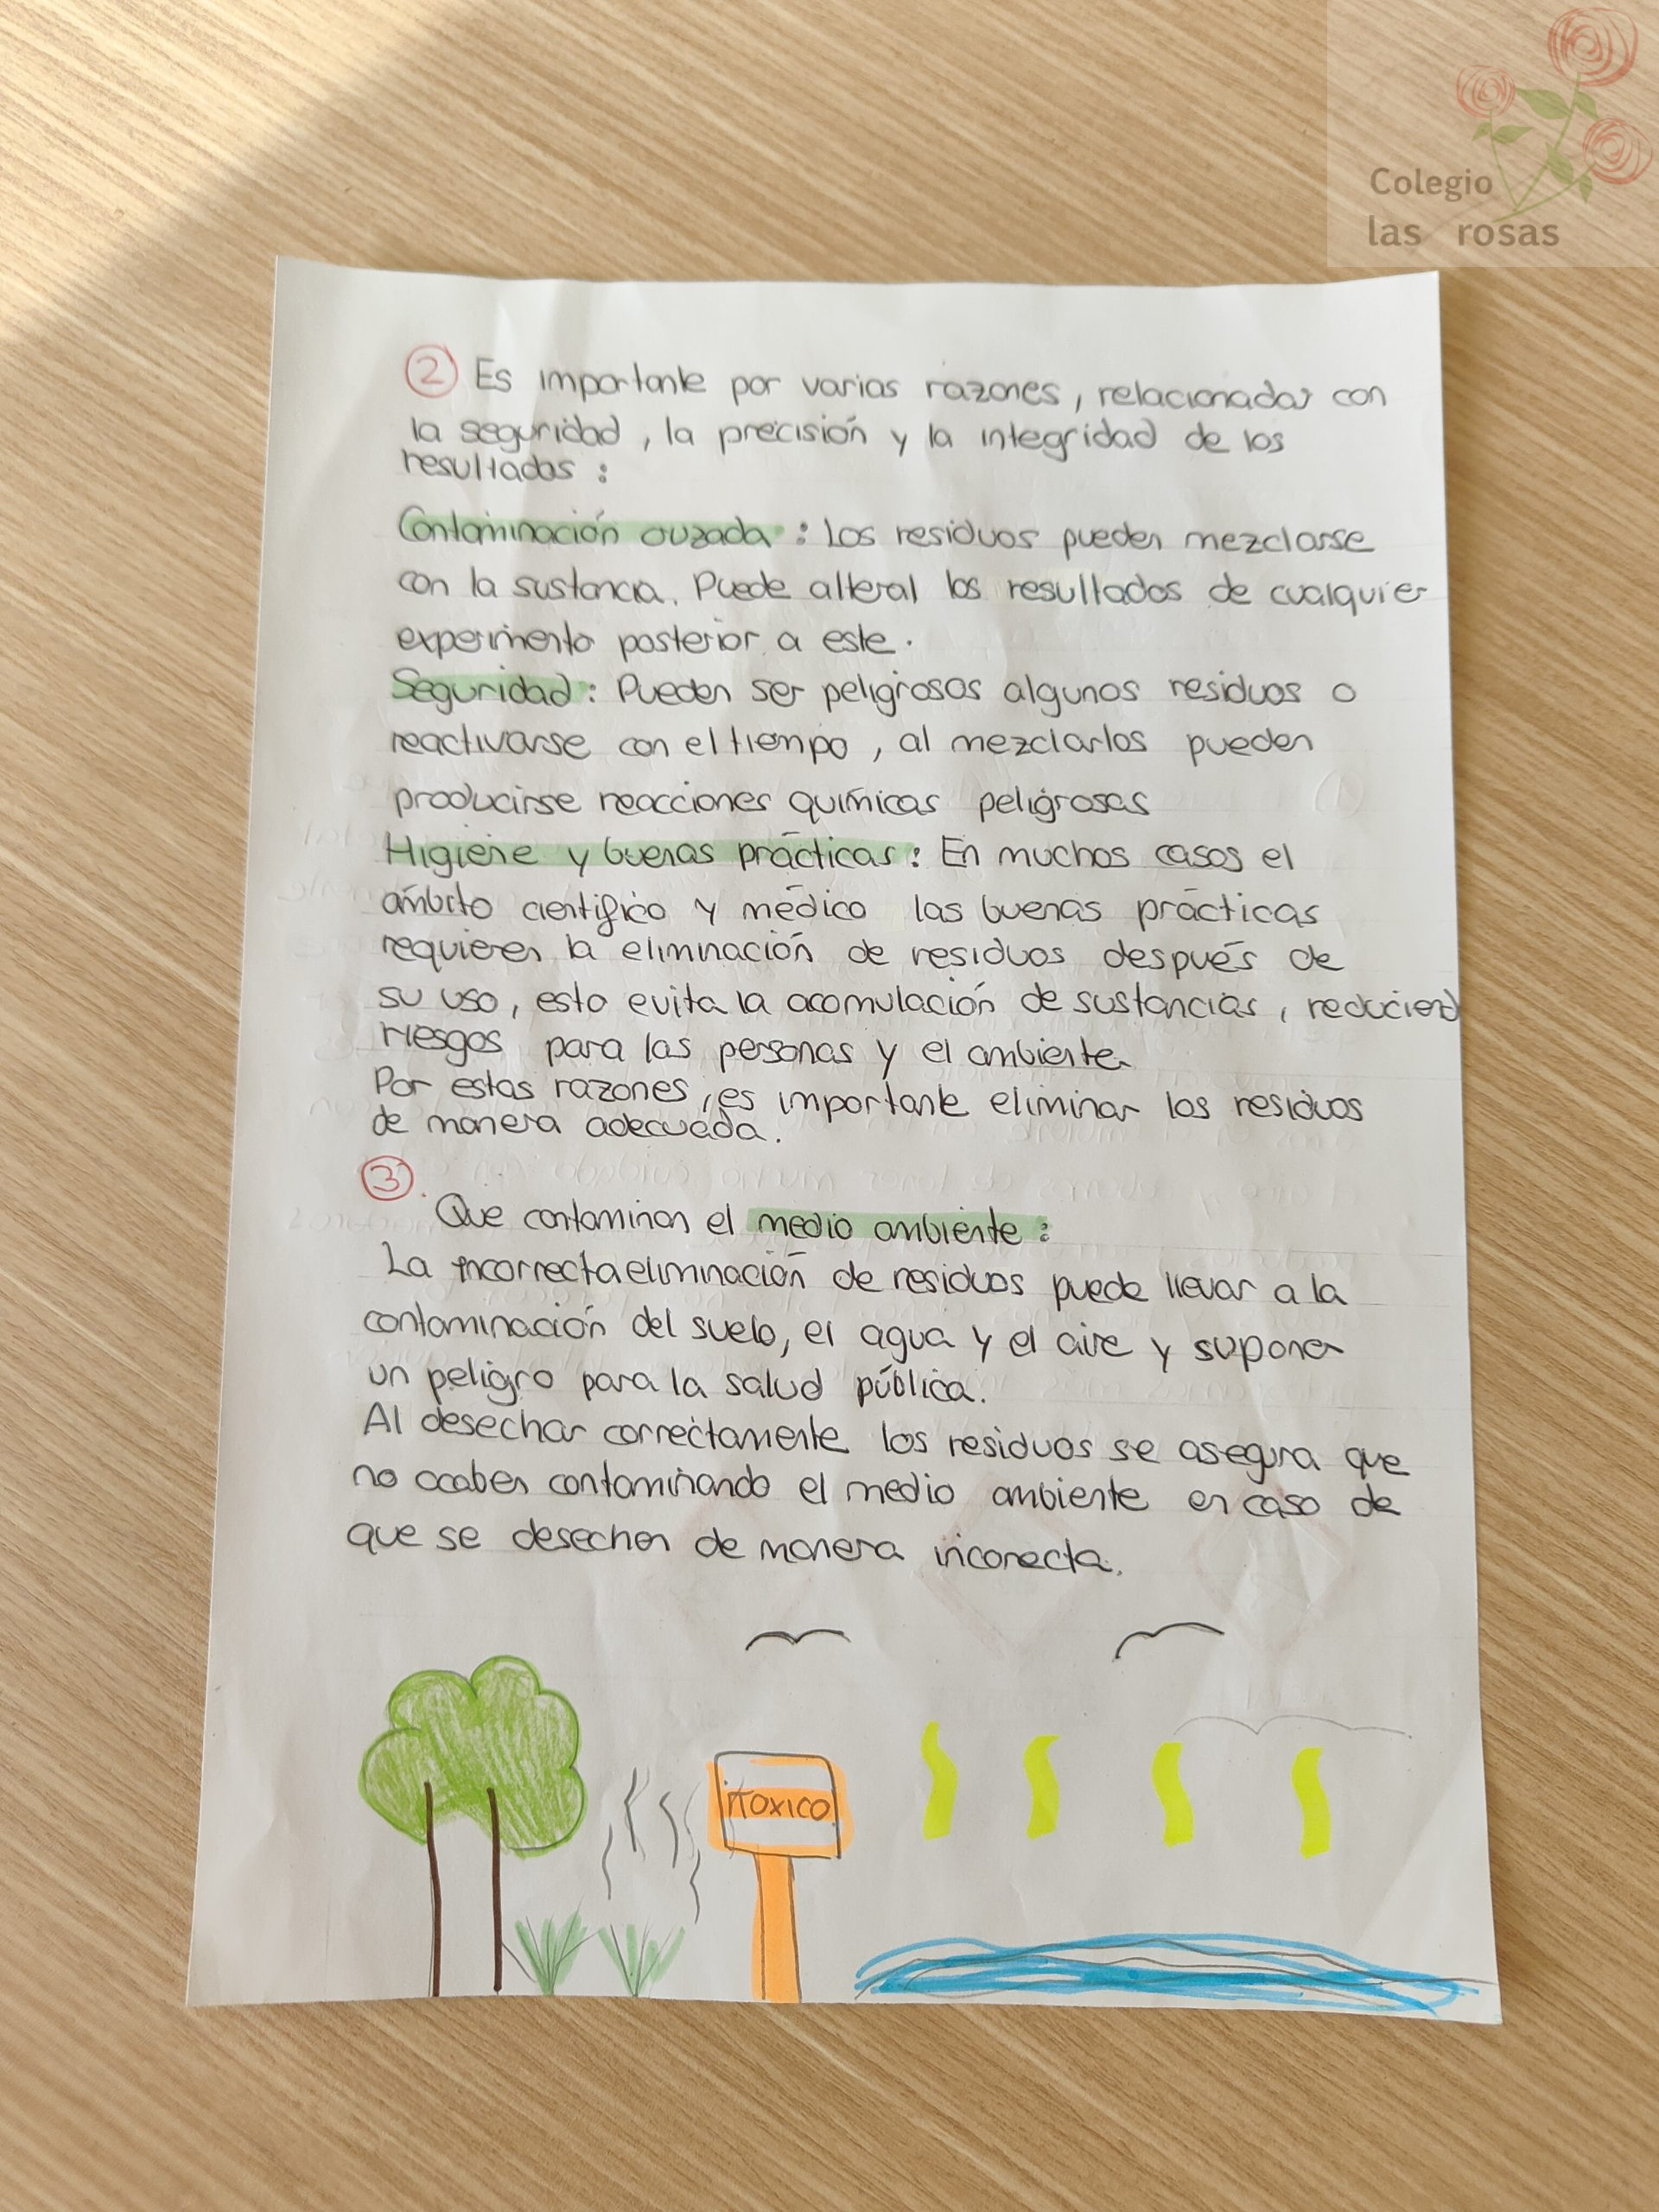 Colegio
las rosas
② Es importante por varias razones, relacionadas con
la seguridad, la precisión y la integridad de los
resultados:
Contaminación cruzada: Los residuos pueden mezclarse
con la sustancia. Puede alteral los resultados de cualquier
experimento posterior a este.
Seguridad: Pueden ser peligrosos algunos residuos o
reactivarse con el tiempo, al mezclarlos pueden
producirse reacciones químicas peligrosas
Higiene y buenas prácticas: En muchos casos el
ámbito científico y médico las buenas prácticas
requieren la eliminación de residuos después de
su uso, esto evita la acomulación de sustancias, reduciend
riesgos para las personas y el ambiente.
Por estas razones, es importante eliminar los residuos
de manera adecuada.
③.
Que contaminan el medio ambiente:
La incorrecta eliminación de residuos puede llevar a la
contaminación del suelo, el agua y el aire y suponer
un peligro para la salud pública.
Al desechar correctamente los residuos se asegura que
no acaben contaminando el medio ambiente en caso de
que se desechen de manera inconecta.
¡TOXICO